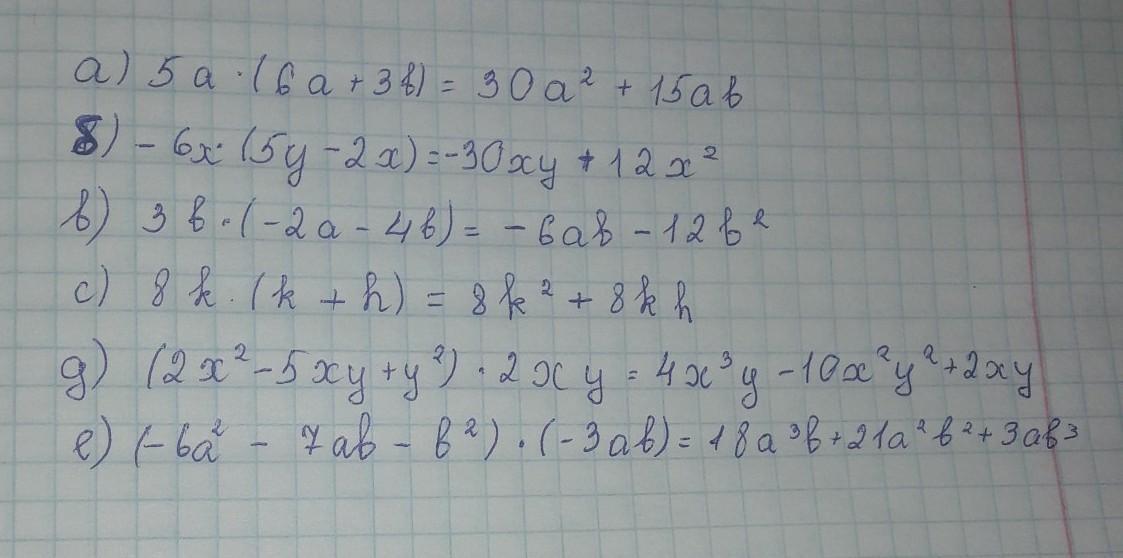 а) 5a · (6a + 3b) = 30a² + 15ab
б) - 6x · (5y - 2x) = -30xy + 12x²
в) 3b · (-2a - 4b) = - 6ab - 12b²
c) 8k · (k + h) = 8k² + 8kh
g) (2x² - 5xy + y²) · 2xy = 4x³y - 10x²y² + 2xy
e) (-6a² - 7ab - b²) · (-3ab) = 18a³b + 21a²b² + 3ab³